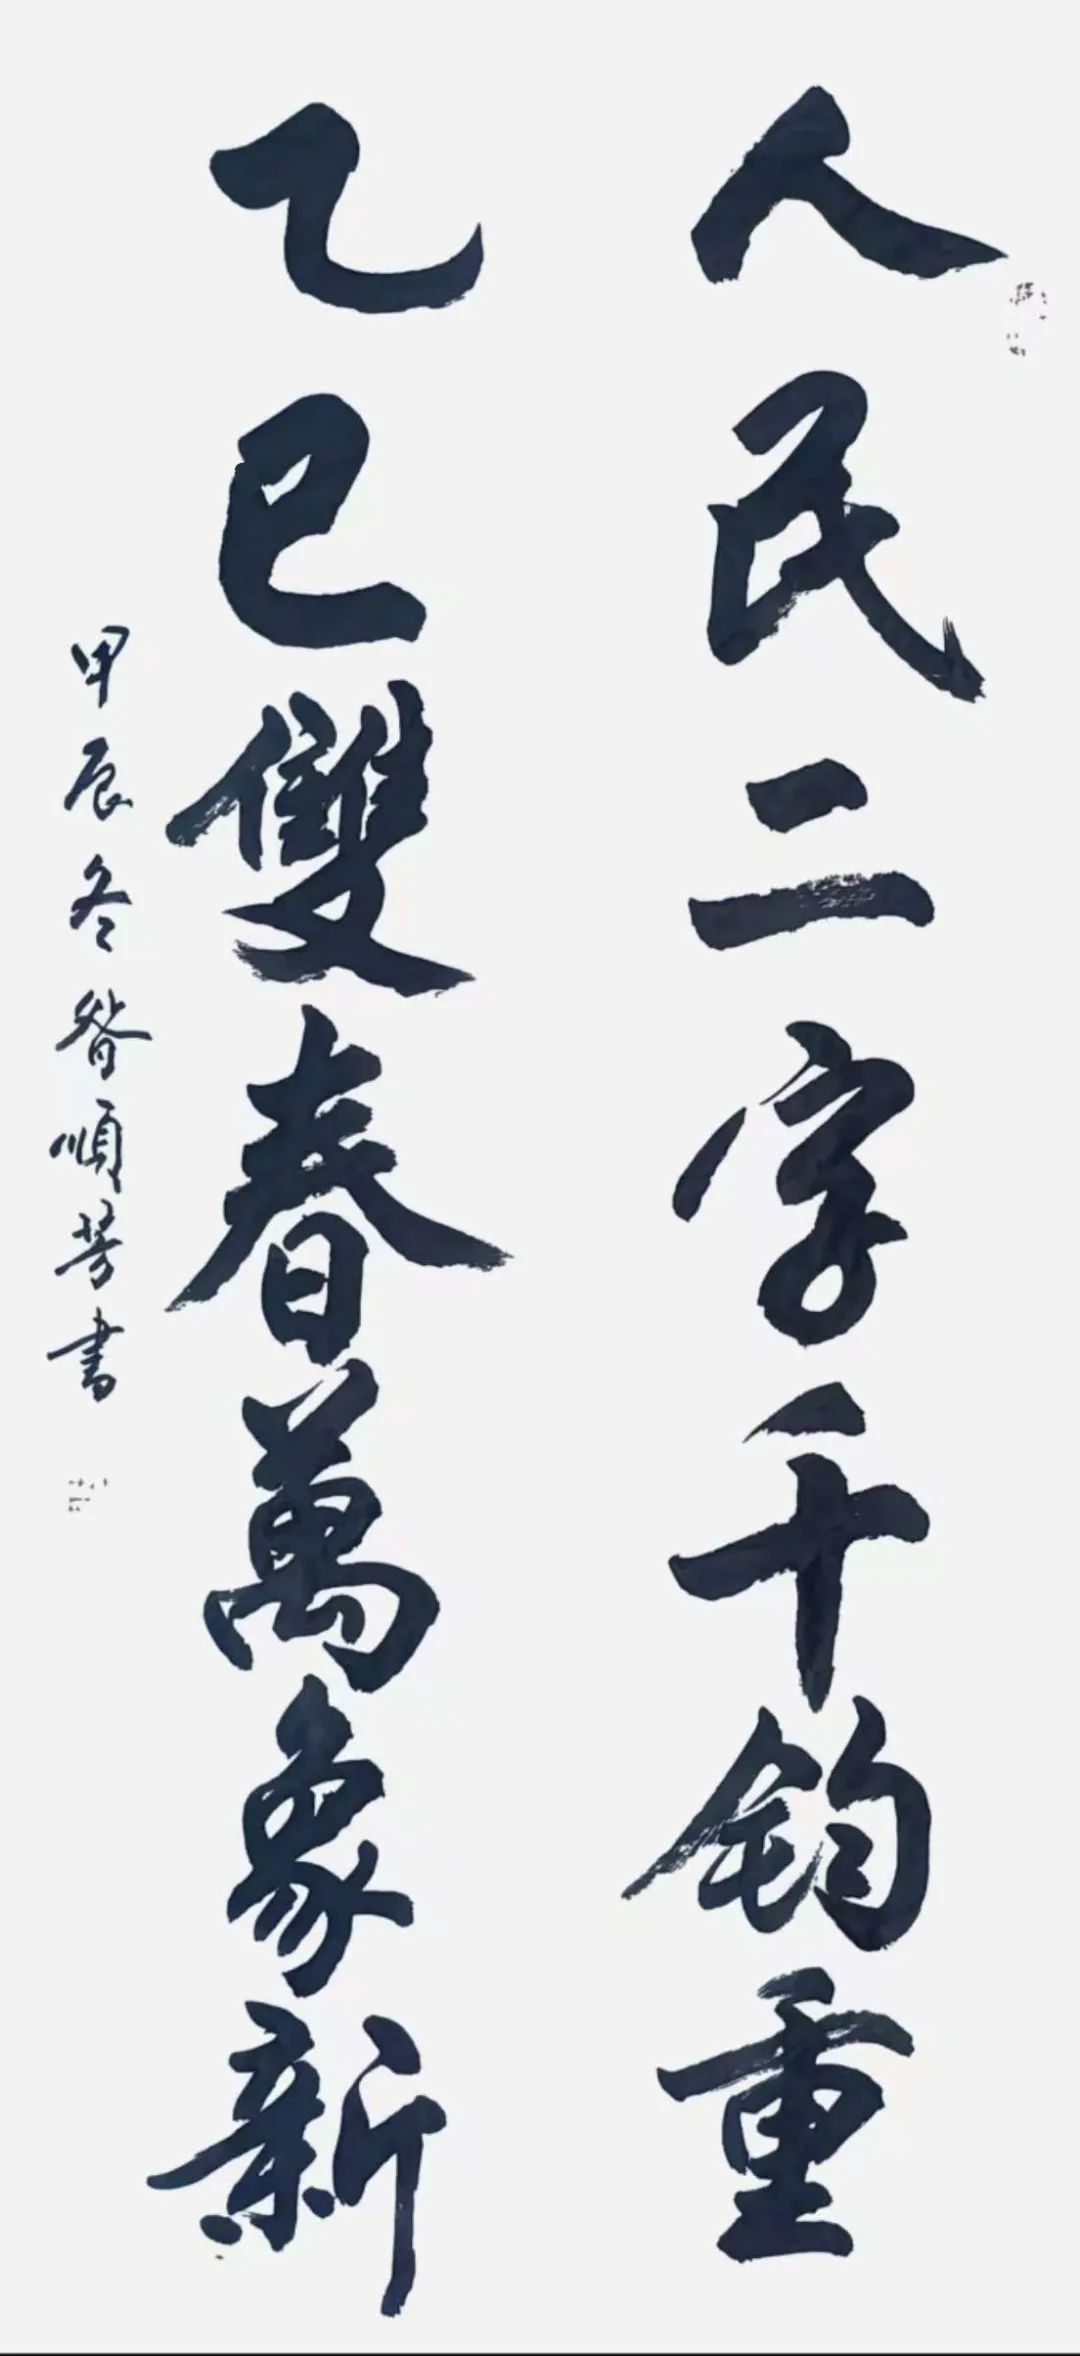 人民二字千钧重
乙巳雙春萬象新
甲辰冬昝順芳書